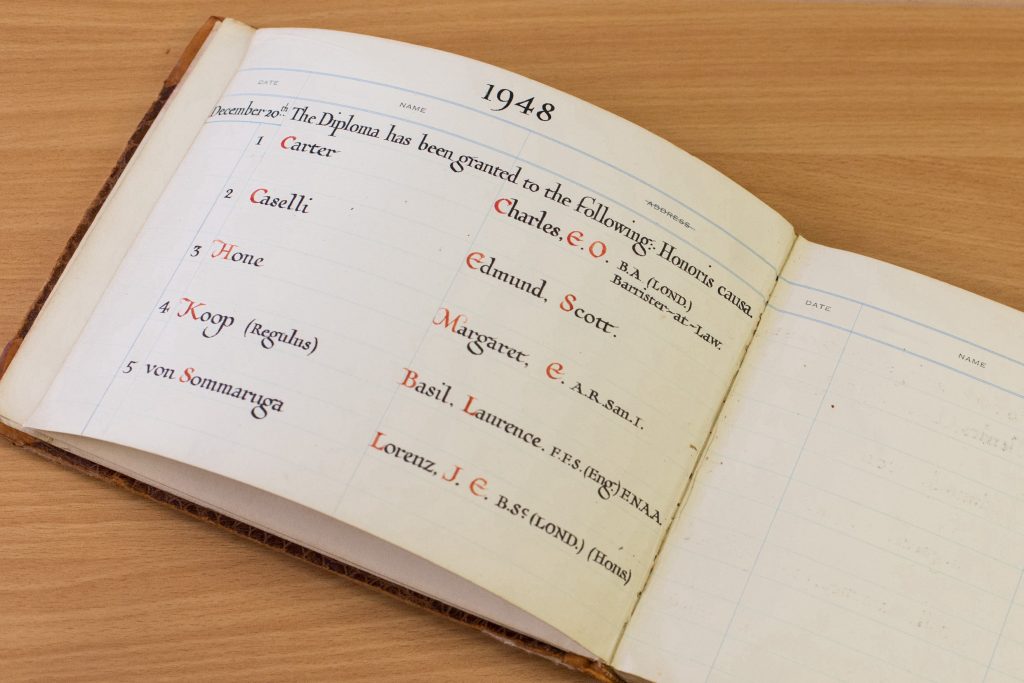 1948
DATE NAME ADDRESS
December 20th The Diploma has been granted to the following: Honoris causa.
1 Carter Charles, E. O. B.A. (LOND.)
Barrister-at-Law.
2 Caselli Edmund, Scott.
3 Hone Margaret, E. A.R.San.I.
4 Koop (Regulus) Basil, Laurence. F.F.S.(Eng.) F.N.A.A.
5 von Sommaruga Lorenz, J. E. B.Sc (LOND.) (Hons)
DATE NAME